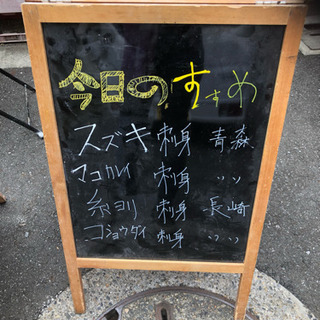 今日のおすすめ
スズキ 刺身 青森
マコカレイ 刺身 〃
糸ヨリ 刺身 長崎
コショウダイ 刺身 〃 〃